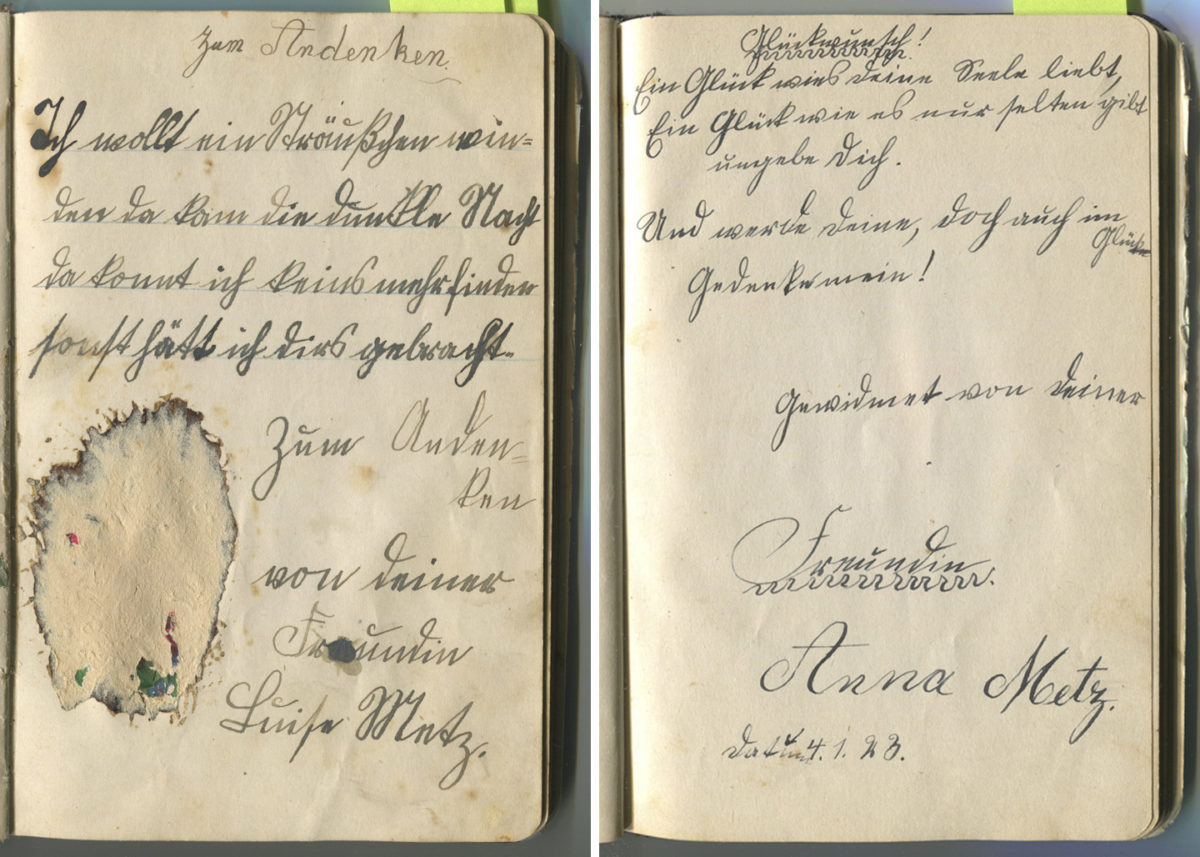 Zum Andenken.
Ich wollt ein Sträußchen win=
den da kam die dunkle Nacht
da konnt ich keins mehr finden
sonst hätt ich dirs gebracht.
Zum Anden=
ken
von deiner
Freundin
Luise Metz.
Glückwunsch!
Ein Glück wies deine Seele liebt,
Ein Glück wie es nur selten gibt
umgebe dich.
Und werde deine, doch auch im
Glück
Gedenke mein!
Gewidmet von deiner
Freundin.
Anna Metz.
Datum 4. 1. 23.